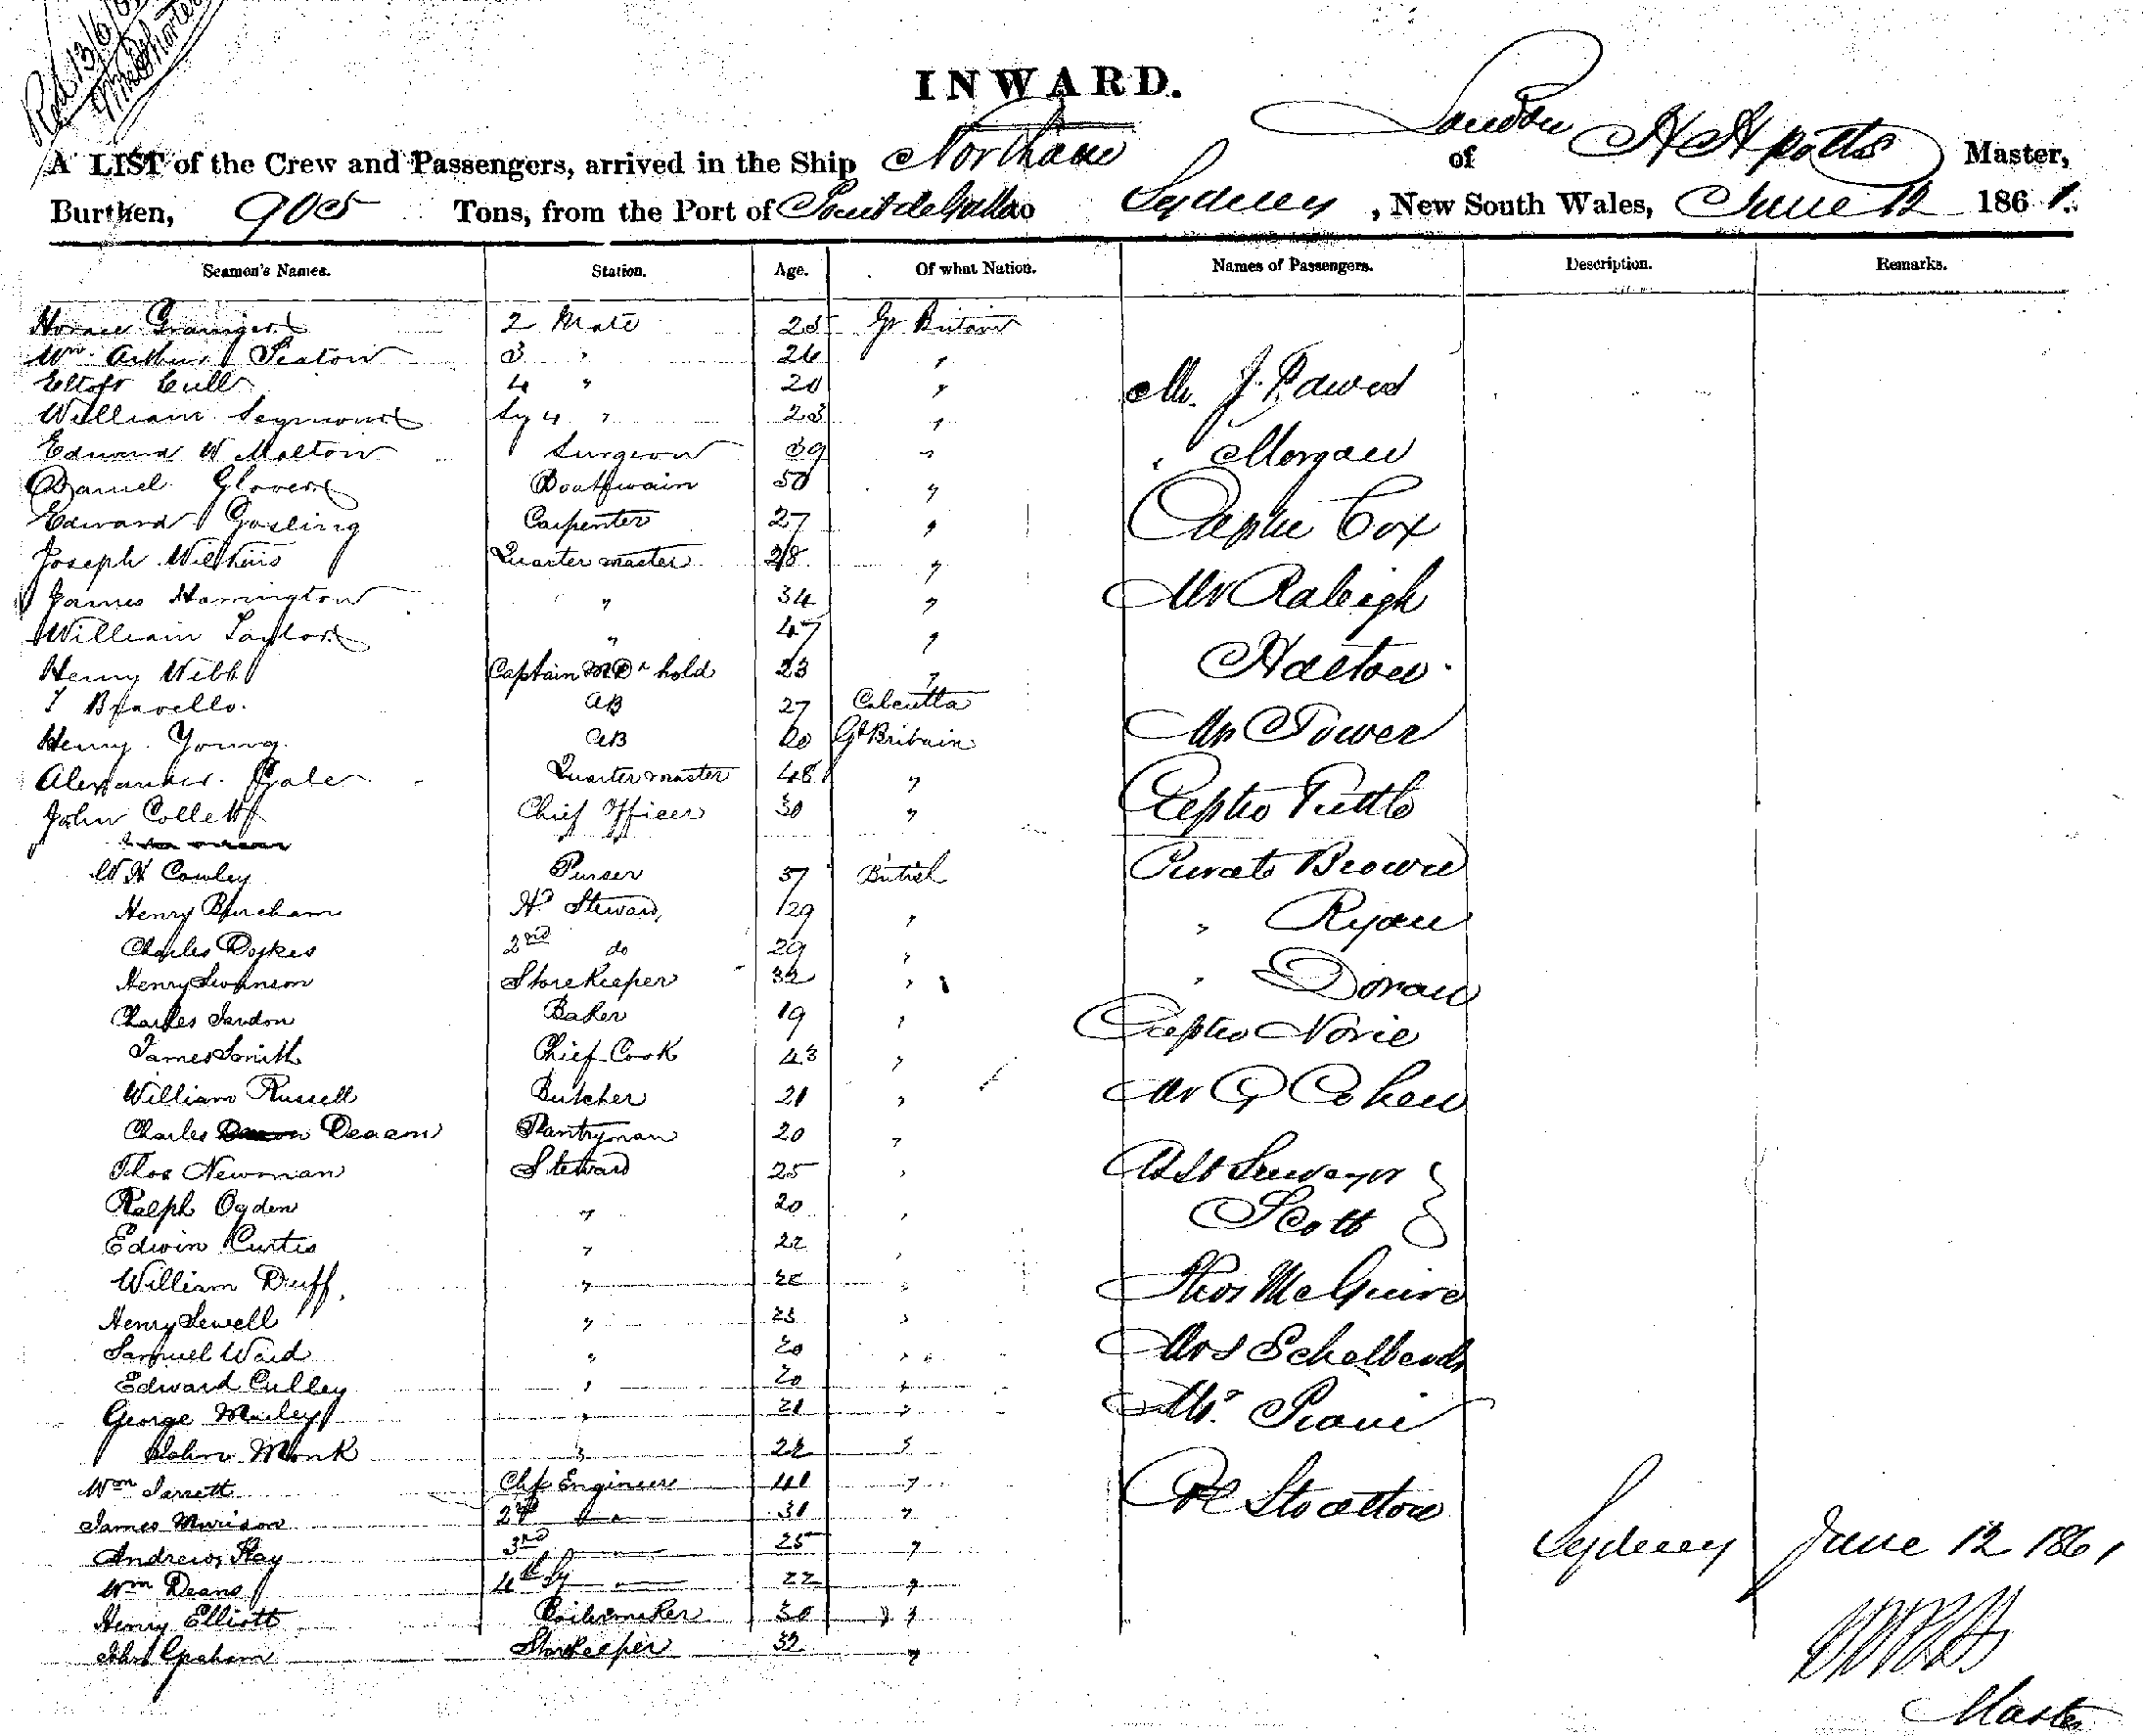 Rec'd 13/6/61
INWARD.
A LIST of the Crew and Passengers, arrived in the Ship Northam of London H H Potts Master,
Burthen, 905 Tons, from the Port of Point de Galle to Sydney, New South Wales, June 12 1861.
Seamen's Names. Station. Age. Of what Nation. Names of Passengers. Description. Remarks.
Horace Grainger 2 Mate 25 Gt Britain
Wm. Arthur Seaton 3 " 26 "
Eltoft Cull 4 " 20 " Mr. J.
William Seymour Sy 4 " 23 "
Edward W Malton Surgeon 39 " " Morgan
Daniel Glover Boatswain 50 "
Edward Gosling Carpenter 27 " Captn Cox
Joseph Wilkins Quarter master 28 "
James Harrington " 34 " Mr Raleigh
William Taylor " 47 "
Henry Webb Captain hold 23 " Halton
T Bravello. AB 27 Calcutta
Henry Young. AB 20 Gt Britain Mr Tower
Alexander Gale Quarter master 48 "
John Collett Chief Officer 30 " Captn Tuttle
W H Cowley Purser 37 British Private Brown
Henry Burcham Hd Steward, 29 " " Ryan
Charles Dykes 2nd do 29 "
Henry Swanson Storekeeper 32 " " Doran
Charles Sandon Baker 19 " Captn Norie
James Smith Chief Cook 43 "
William Russell Butcher 21 " Mr G Cohen
Charles Deacon Pantryman 20 "
Thos Newman Steward 25 " Asst Surveyor
Ralph Ogden " 20 " Scott
Edwin Curtis " 22 "
William Duff. " 22 " Thos McGuire
Henry Sewell " 23 "
Samuel Ward " 20 " Mrs
Edward Culley " 20 "
George Manley " 21 " Mr.
John Monk " 22 "
Wm Jarrett Chf Engineer 41 "
James Murison 2nd " 31 "
Andrew Hay 3rd " 25 " Sydney June 12 1861
Wm Deans 4th Sy " 22 "
Henry Elliott Boilermaker 30 "
John Graham Storekeeper 32 "
H H Potts
Master